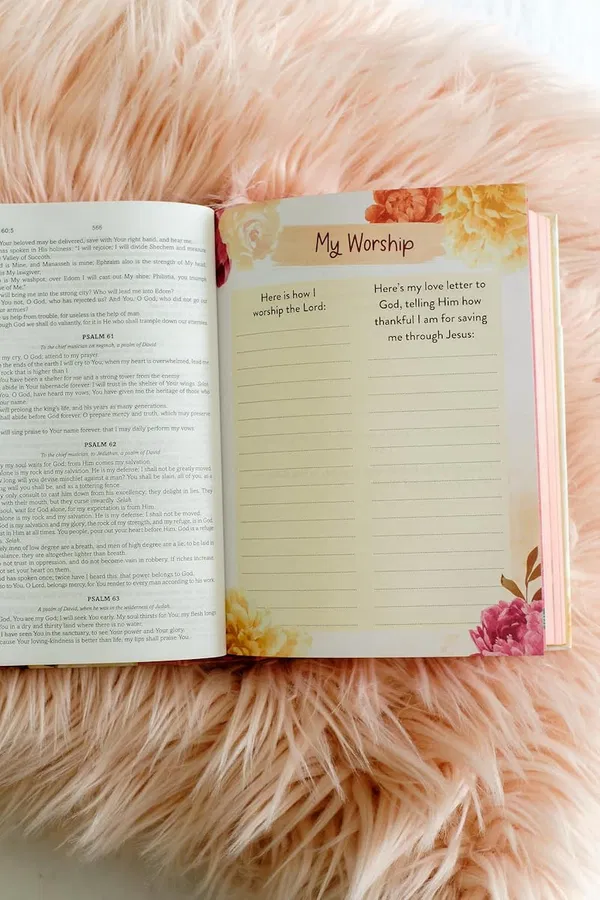 60:5 566
Your beloved may be delivered, save with Your right hand, and hear me.
as spoken in His holiness: "I will rejoice; I will divide Shechem and measure
Valley of Succoth.
is Mine, and Manasseh is mine; Ephraim also is the strength of My
is My lawgiver;
is My washpot; over Edom I will cast out My shoe; Philistia, you triumph
of Me."
will bring me into the strong city? Who will lead me into Edom?
You not, O God, who has rejected us? And You, O God, who did not go out
our armies?
us help from trouble, for useless is the help of man.
ough God we shall do valiantly, for it is He who shall trample down our enemies.
PSALM 61
To the chief musician on neginah, a psalm of David.
my cry, O God; attend to my prayer.
the ends of the earth I will cry to You, when my heart is overwhelmed; lead me
rock that is higher than I.
You have been a shelter for me and a strong tower from the enemy.
abide in Your tabernacle forever; I will trust in the shelter of Your wings. Selah
You, O God, have heard my vows; You have given me the heritage of those who
Your name.
will prolong the king's life, and his years as many generations.
shall abide before God forever. O prepare mercy and truth, which may preserve
will sing praise to Your name forever, that I may daily perform my vows.
PSALM 62
To the chief musician, to Jeduthun, a psalm of David.
my soul waits for God; from Him comes my salvation.
alone is my rock and my salvation. He is my defense; I shall not be greatly moved.
long will you devise mischief against a man? You shall be slain, all of you; as a
wall you shall be, and as a tottering fence.
only consult to cast him down from his excellency; they delight in lies. They
with their mouth, but they curse inwardly. Selah
soul, wait for God alone, for my expectation is from Him.
alone is my rock and my salvation. He is my defense; I shall not be moved.
God is my salvation and my glory; the rock of my strength, and my refuge, is in God.
in Him at all times. You people, pour out your heart before Him. God is a refuge
Selah
men of low degree are a breath, and men of high degree are a lie; to be laid in
balance, they are altogether lighter than breath.
not trust in oppression, and do not become vain in robbery. If riches increase,
not set your heart on them.
has spoken once; twice have I heard this: that power belongs to God.
to You, O Lord, belongs mercy, for You render to every man according to his work.
PSALM 63
A psalm of David, when he was in the wilderness of Judah.
God, You are my God; I will seek You early. My soul thirsts for You; my flesh longs
You in a dry and thirsty land where there is no water.
I have seen You in the sanctuary, to see Your power and Your glory.
cause Your loving-kindness is better than life, my lips shall praise You.
My Worship
Here is how I
worship the Lord:
Here's my love letter to
God, telling Him how
thankful I am for saving
me through Jesus: